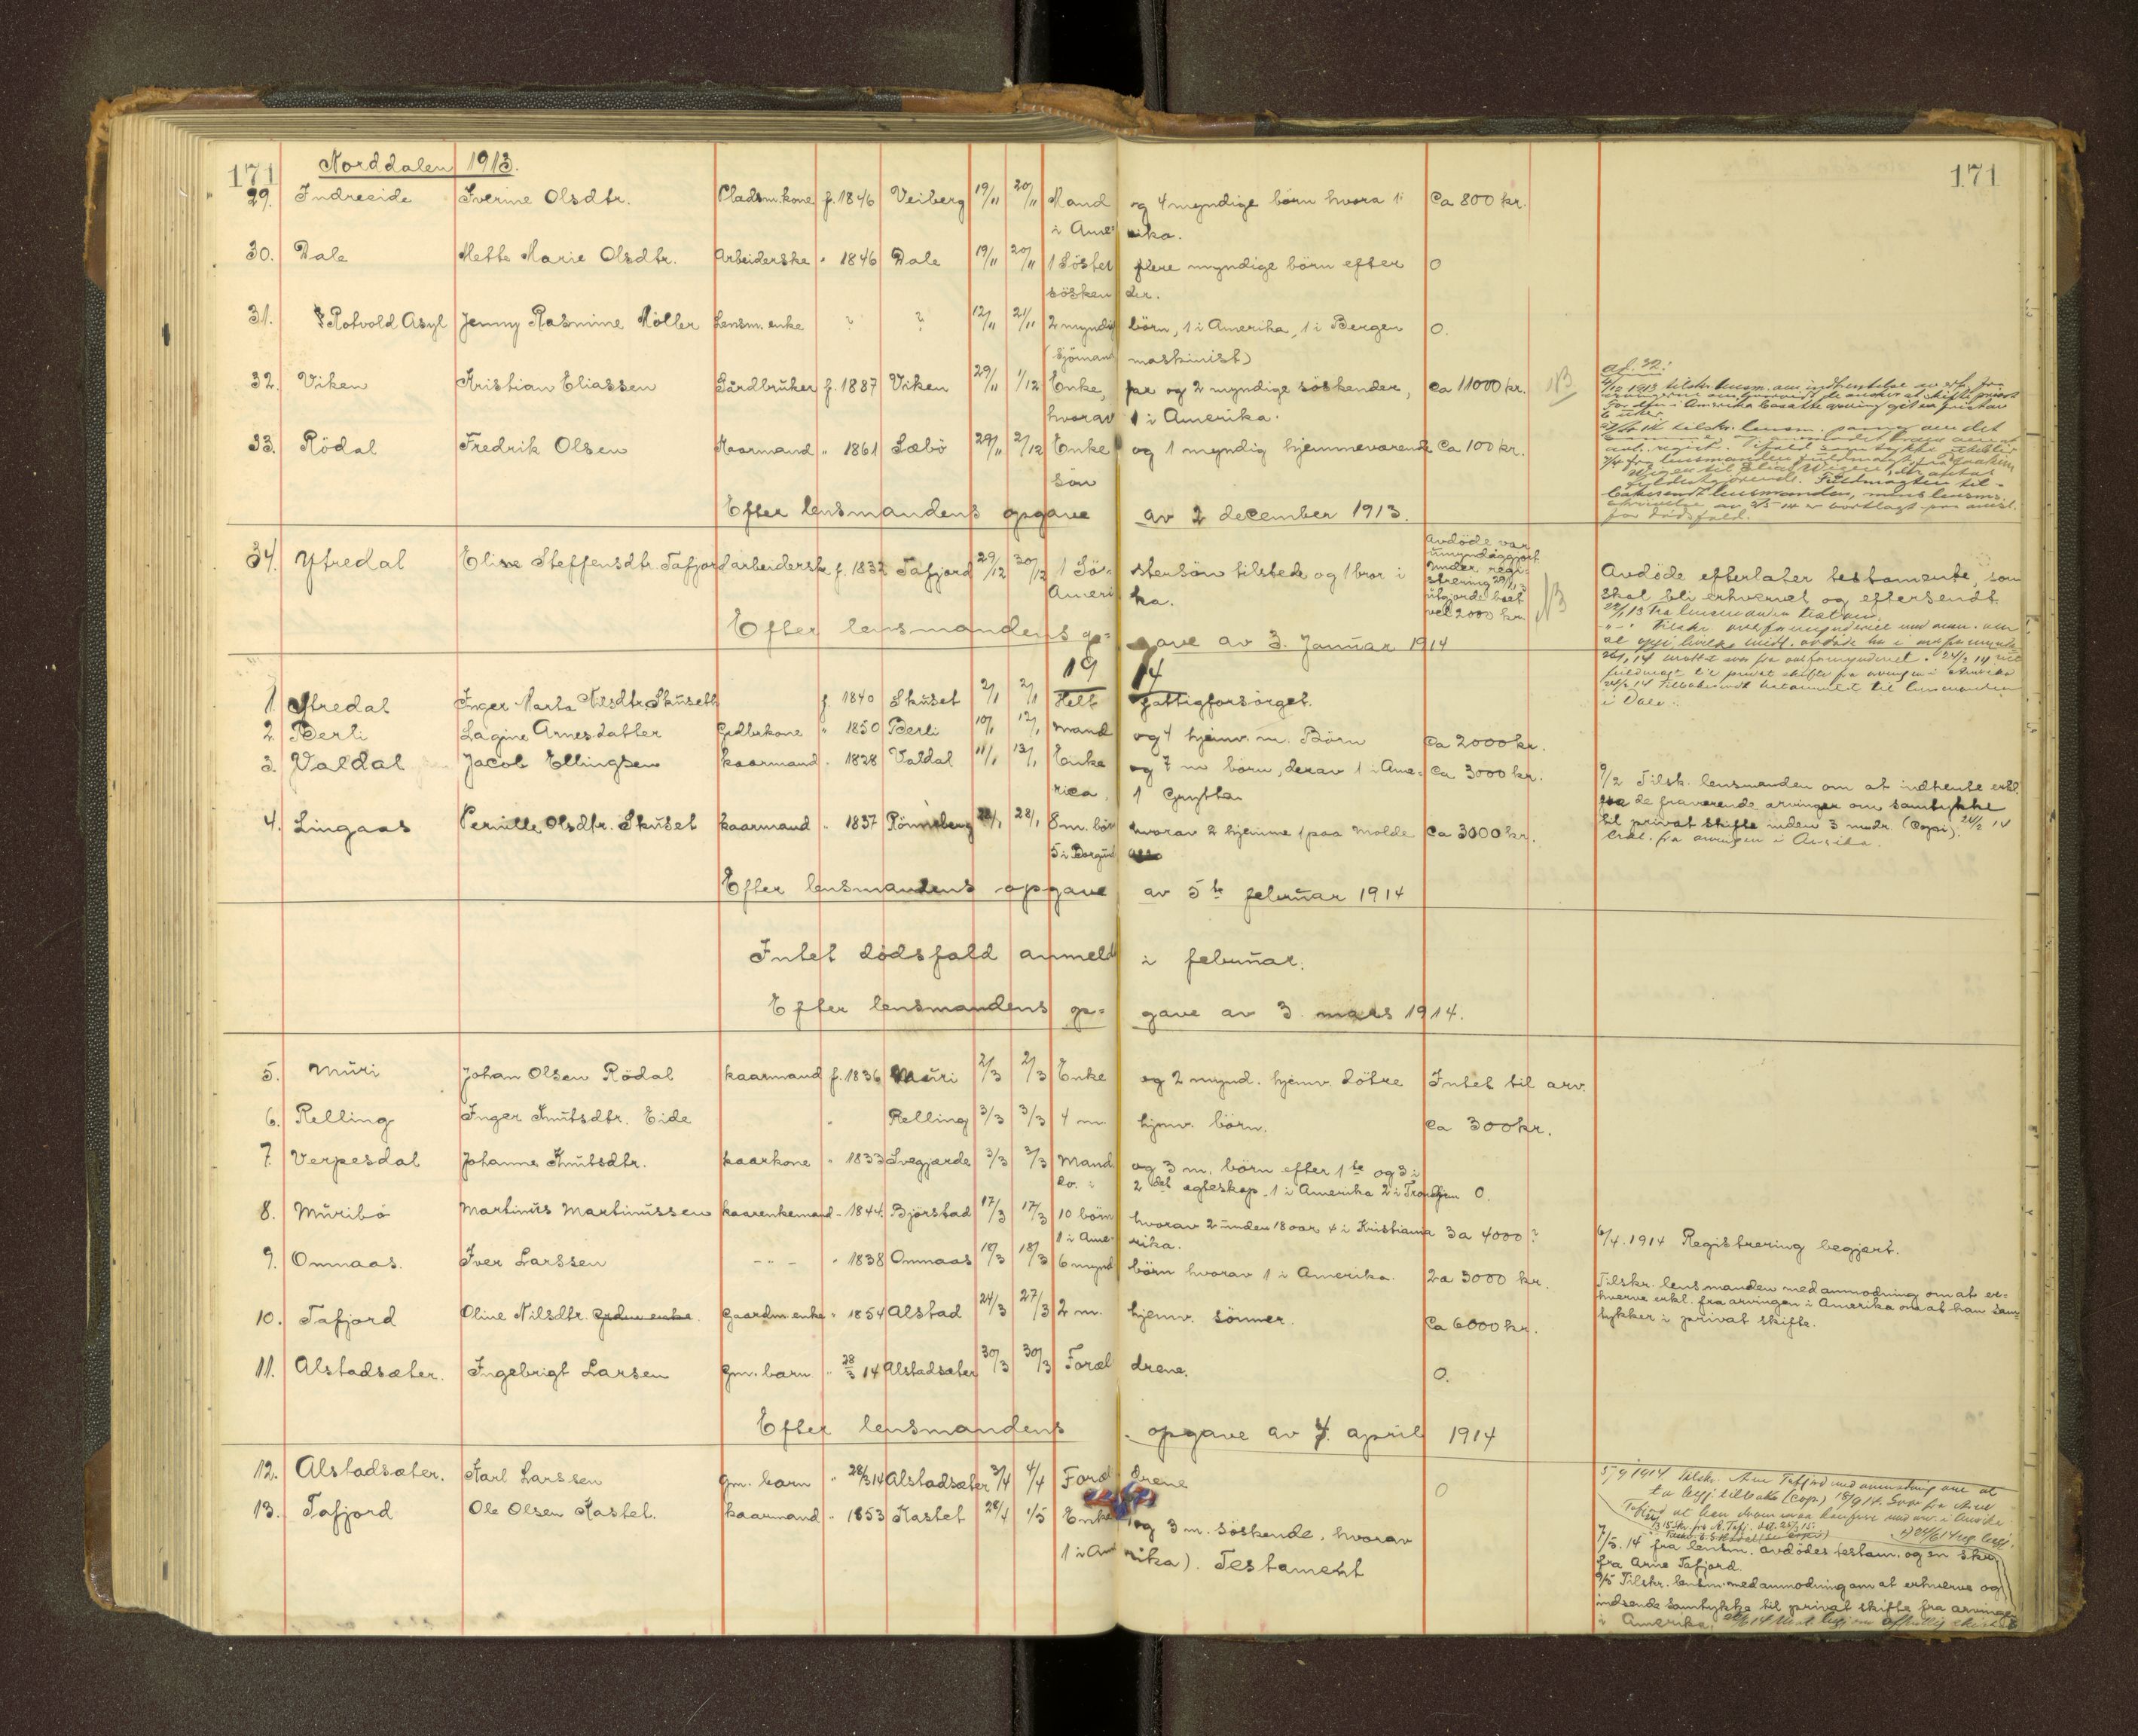 171 Norddalen 1913. 171
29. Indreeide Iverine Olsdtr. Pladsm.kone f. 1846 Veiberg 19/11 20/11 Mand og 4 myndige børn hvora 1 i Ca 800 kr.
i Ame- rika.
30. Dale Mette Marie Olsdtr. Arbeiderske " 1846 Dale 19/11 20/11 1 Söster flere myndige börn efter 0
sösken der.
31. Rotvold Asyl Jenny Rasmine Möller Lensm. enke ? ? 12/11 21/11 2 myndig börn, 1 i Amerika, 1 i Bergen 0.
(sjömand maskinist)
32. Viken Kristian Eliassen Gårdbruker f. 1887 Viken 29/11 1/12 Enke, far og 2 myndige söskender, ca 11000 kr. NB
hvorav 1 i Amerika.
33. Rödal Fredrik Olsen Kaarmand " 1861 Sæbö 29/11 2/12 Enke og 1 myndig hjemmeværende Ca 100 kr.
sön
Efter lensmandens opgave av 2 december 1913.
ad. 32:
4/12 1913 tilskr. lensm. om indhentelse av erkl. fra
lensmanden, mens lensm:
skrivelse av 2/5 14 er vortlagt paa anist.
for dödsfald.
34. Ytredal Elise Steffensdtr. Tafjord arbeiderske f. 1832 Tafjord 29/12 30/12 1 Sö- stersön tilstede og 1 bror i
Ameri ka.
Avdöde var
umyndiggjort
under regi-
strering 29/1 13
utgjorde boet
vel 2000 kr. NB
Avdöde efterlater testamente, som
skal bli erhvervet og eftersendt.
Efter lensmandens op- gave av 3. Januar 1914
i Dale.
1914
1. Ytredal Inger Marta Nilsdtr. Skuseth f. 1840 Skuset 2/1 2/1 Helt fattigforsörget.
2. Berli Lagine Arnesdatter Grdbrkone " 1850 Berli 10/1 12/1 mand og 4 hjemv. m. Börn Ca 2000 kr.
3. Valdal Jacob Ellingsen kaarmand " 1828 Valdal 11/1 13/1 Enke og 7 m börn, derav 1 i Ame- Ca 3000 kr.
rica, 1 Grytten
4. Lingaas Pernille Olsdtr. Skuset kaarmand " 1837 Rönneberg 28/1 28/1 8 m. bör hvorav 2 hjemme 1 paa Molde Ca 3000 kr.
5 i Borgund
9/2 Tilsk. lensmanden om at indhente erkl.
fra de fraværende arvinger om samtykke
til privat skifte inden 3 mndr. (Copi). 24/2 14
erkl. fra arvingen i Amrika.
Efter lensmandens opgave av 5te februar 1914
Intet dödsfald anmeld i februar.
Efter lensmandens op- gave av 3 mars 1914.
5. Muri Johan Olsen Rödal kaarmand f. 1836 Muri 2/3 2/3 Enke og 2 mynd. hjemv. dötre Intet til arv.
6. Relling Inger Knutsdtr. Eide " Relling 3/3 3/3 4 m. hjmv. börn. Ca 300 kr.
7. Verpesdal Johanne Knutsdtr. kaarkone " 1833 Svegjærde 3/3 3/3 Mand og 3 m. börn efter 1te og 3 i
do. 2det egteskap. 1 i Amerika 2 i Trondhjem 0.
8. Muribö Martinus Martinussen kaarenkemand " 1844. Björstad 17/3 17/3 10 börn hvorav 2 unden 18 aar 4 i Kristiania 3 a 4000 ?
1 i Ame- rika.
6/4. 1914 Registrering begjært.
9. Ommaas. Iver Larssen - " - " 1838 Ommaas 18/3 18/3 6 mynd börn hvorav 1 i Amerika. 2 a 3000 kr.
Tilskr. lensmanden med anmodning om at er-
hverve erkl. fra arvingen i Amerika om at han sam-
tykker i privat skifte.
10. Tafjord Oline Nilsdtr. Grdm enke. Gaardm. enke " 1854 Alstad 24/3 27/3 2 m. hjemv. sönner. Ca 6000 kr.
11. Alstadsæter. Ingebrigt Larsen Gm. barn " 28/3 14 Alstadsæter 30/3 30/3 Foræl drene. 0.
Efter lensmandens opgave av 4. april 1914
12. Alstadsæter. Karl Larssen Gm. barn " 28/3 14 Alstadsæter 3/4 4/4 Foræl drene 0
13. Tafjord Ole Olsen Kastet. kaarmand " 1853 Kastet 28/4 1/5 Enke og 3 m. söskende, hvorav
1 i Am rika). Testament
7/5. 14 fra lensm. avdödes testam. og en skr.
fra Arne Tafjord.
9/5 Tilskr. lensm. med anmodning om at erhverve og
indsende samtykke til privat skifte fra arvinge
i Amerika.